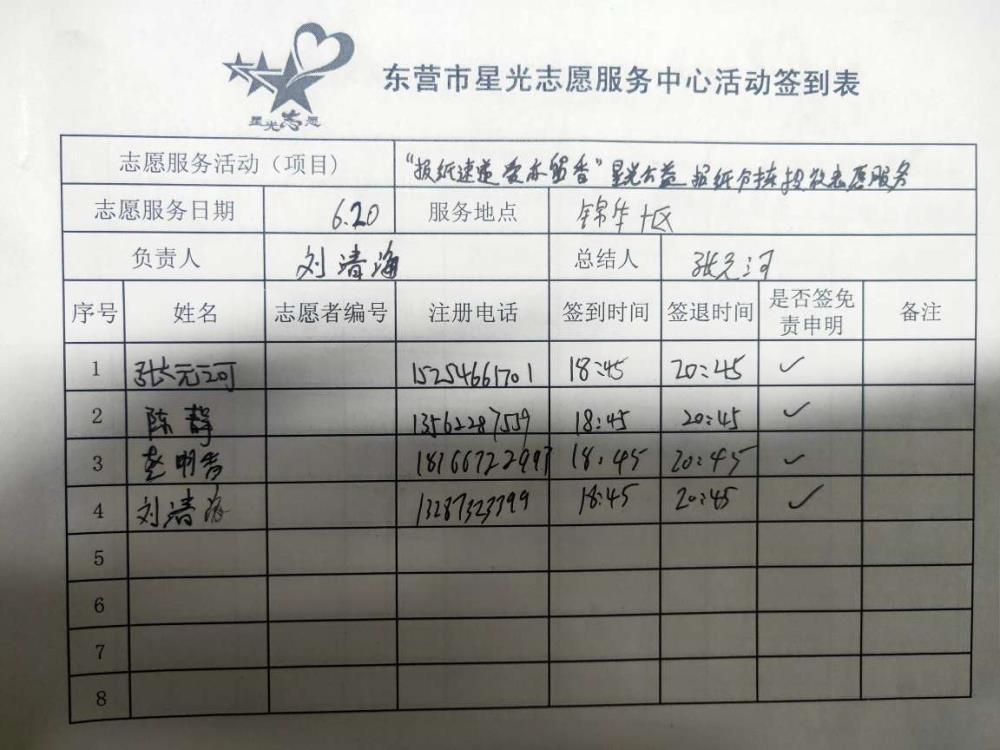 星光志愿
东营市星光志愿服务中心活动签到表
志愿服务活动（项目） “报纸速递 爱亦留香”星光公益 报纸分拣投放志愿服务
志愿服务日期 6.20 服务地点 锦华十区
负责人 刘清海 总结人 张元河
序号 姓名 志愿者编号 注册电话 签到时间 签退时间 是否签免责申明 备注
1 张元河 15254661701 18:45 20:45 ✓
2 陈静 13562287559 18:45 20:45 ✓
3 赵明青 18166722997 18:45 20:45 ✓
4 刘清海 13287323399 18:45 20:45 ✓
5
6
7
8